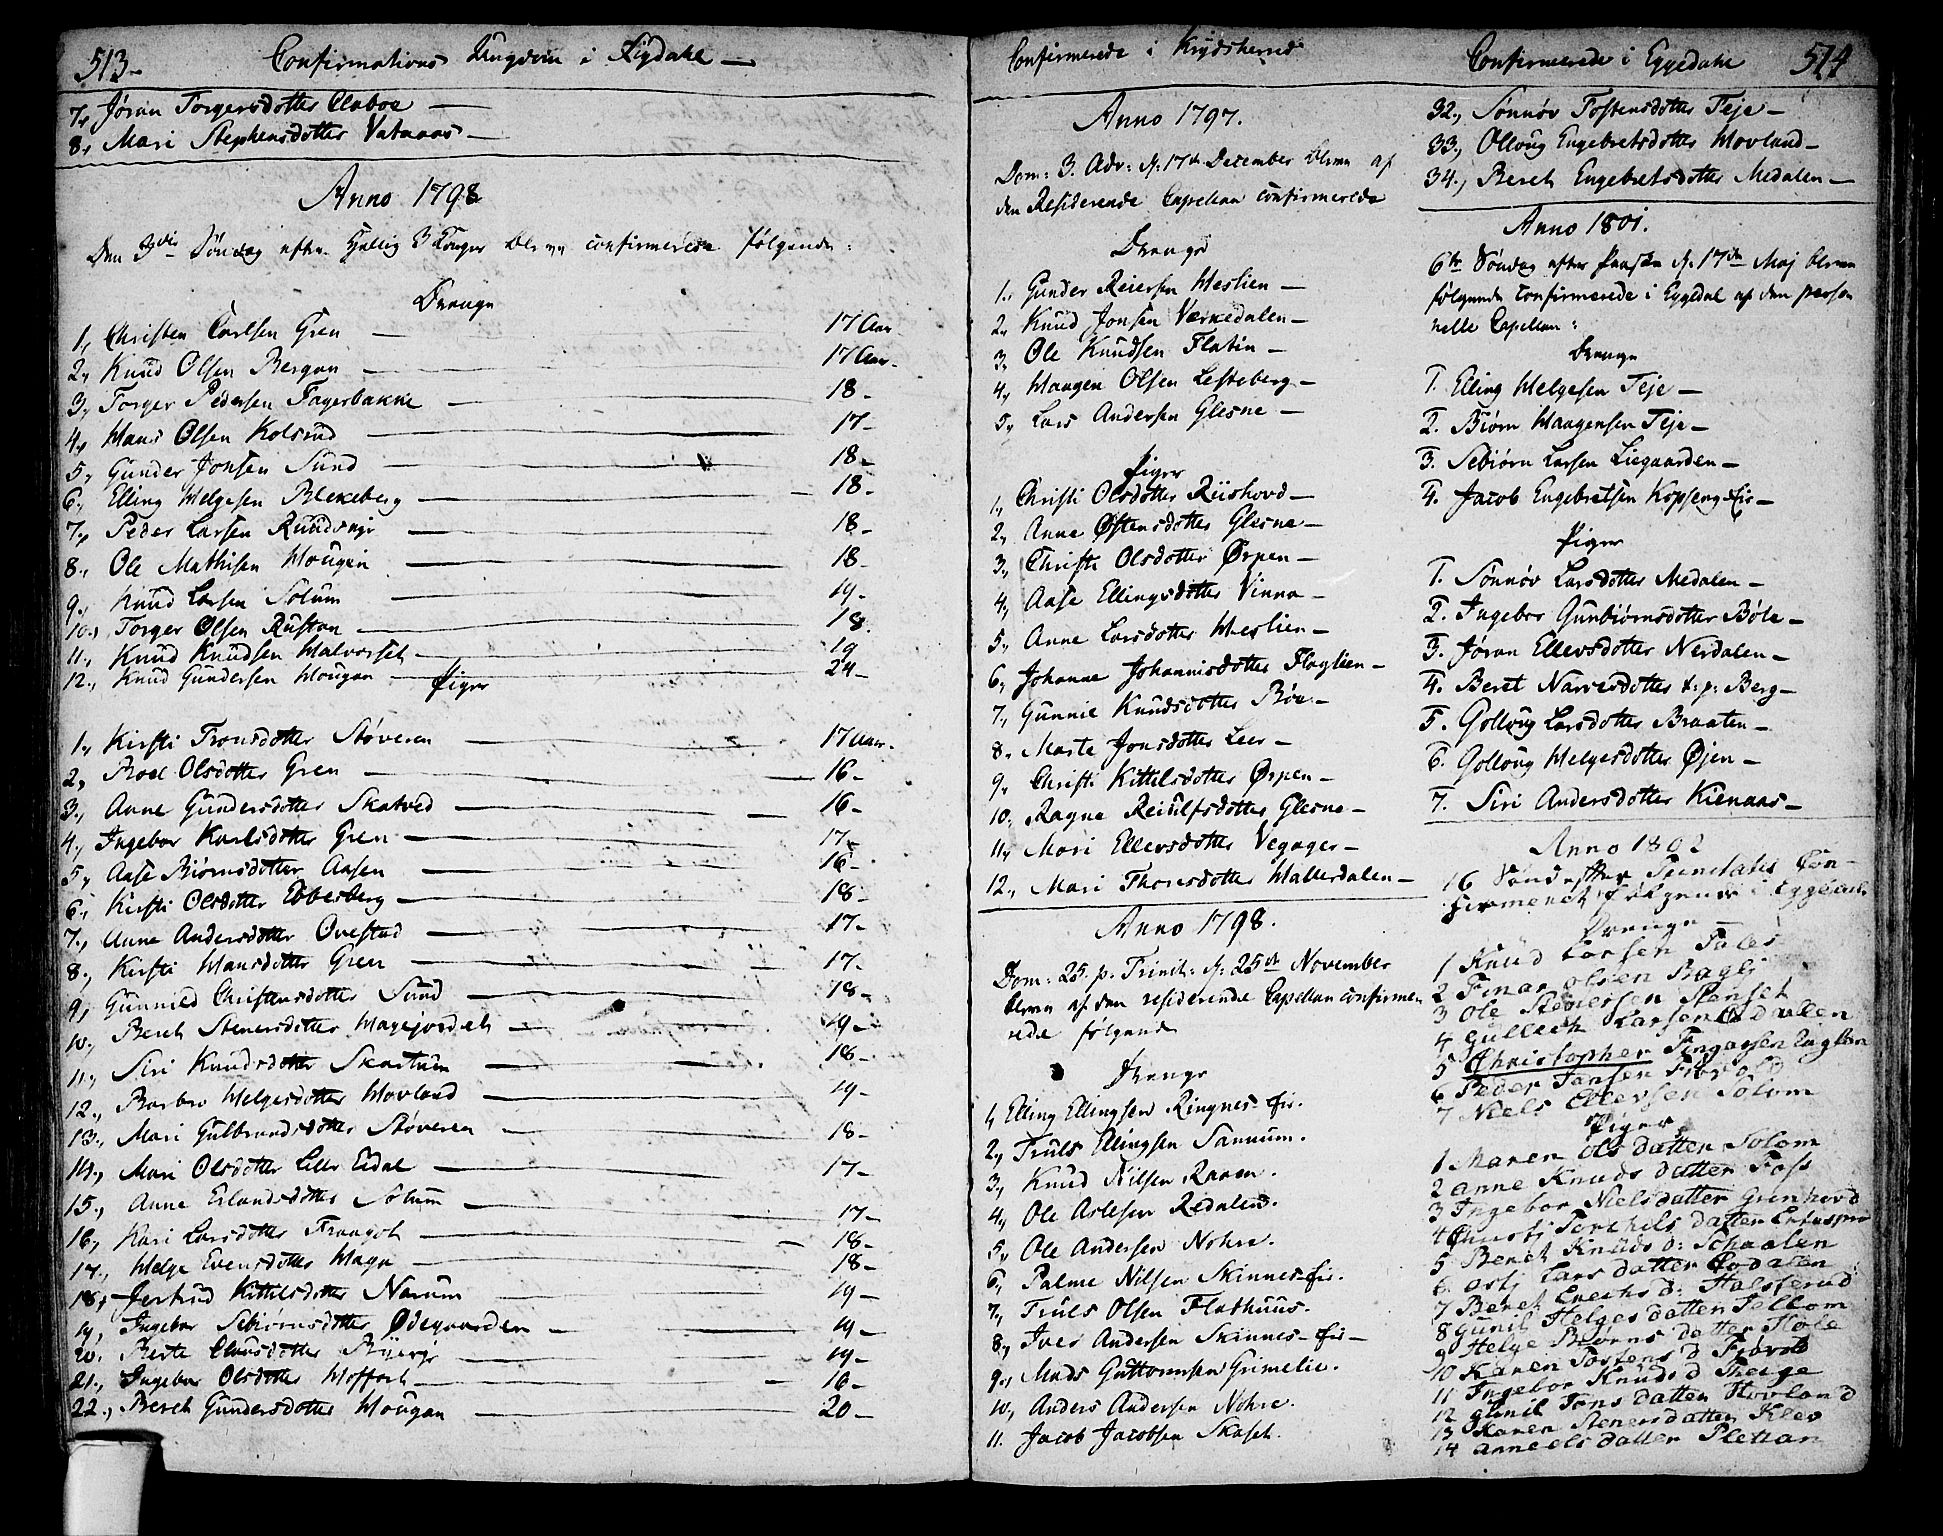 513.
Confirmations Ungdom i Sigdahl —
7., Jøran Torgersdotter Aaboe —
8., Mari Stephensdotter Vatnaas —
Anno 1798
Den 3die Søndag efter Hellig 3 Konger bleve confirmerede følgende:
Drenge
1., Christen Carlsen Gren — 17 Aar.
2., Knud Olsen Bergan — 17 Aar.
3., Torger Pedersen Fagerbakke — 18.
4., Hans Olsen Kolsrud — 17.
5., Gunder Jonsen Sund — 18.
6., Elling Helgesen Blekeberg — 18.
7., Peder Larsen Ruudsnge — 18.
8., Ole Mathisen Hougen — 18.
9., Knud Larsen Solum — 19.
10., Torger Olsen Rustan — 18.
11., Knud Knudsen Halvorset — 19
12., Knud Gundersen Hougan — 24
Piger
1., Kirsti Tronsdotter Støveren — 17 Aar.
2., Roel Olsdotter Gren — 16
3., Anne Gundersdotter Skatved — 16
4., Ingebor Karlsdotter Gren — 17
5., Aase Biørnsdotter Aasen — 16
6., Kirsti Olsdotter Ebbesberg — 18
7., Anne Andersdotter Ovestad — 17
8., Kirsti Hansdotter Gren — 17
9., Gunnild Christensdotter Sund — 18
10., Bereth Stenersdotter Hagejordet — 19
11., Siri Knudsdotter Skartum — 18
12., Barbro Helgesdotter Hovland — 19
13., Mari Gulbrandsdotter Støveren — 18
14., Mari Olsdotter Lille Eidal — 17
15., Anne Erlandsdotter Solum
16., Kari Larsdotter Fraagot — 17
17., Helge Evensdotter Hagn — 18
18., Jertrud Kittilsdotter Narum — 18
19., Ingebor Sebiørnsdotter Ødegaarden — 19
20. Berte Clausdotter Bjerge — 19
21., Ingebor Olsdotter Hoffart — 19
22., Bereth Gundersdotter Hougan — 16
20
Confirmerede i Krydsherred
Anno 1797.
Dom: 3. Adv: d. 17de December bleve af
den Residerende Capellan confirmerede
Drenge
1., Gunder Reiersen Heslien —
2., Knud Jonsen Værkedalen —
3., Ole Knudsen Flatin —
4., Haagen Olsen Lesteberg —
5., Lars Andersen Glesne —
Piger
1., Christi Olsdotter Riishovd —
2., Anne Østensdotter Glesne —
3., Christi Olsdotter Ørpen —
4., Aase Ellingsdotter Vinna —
5., Anne Larsdotter Heslien —
6., Johanne Johannisdotter Flaglien —
7., Gunnil Knudsdotter Bøe —
8., Marte Jonsdotter Leer —
9., Christi Kittilsdotter Ørpen —
10., Ragne Reiulfsdotter Glesne —
11., Mari Ellevsdotter Vegager —
12., Mari Thoresdotter Hallerdalen —
Anno 1798.
Dom: 25. p. Trinit: d. 25de November
bleve af den residerende Capellan confirme-
rede følgende
Drenge
1., Elling Ellingsen Ringnes-Eie.
2., Truls Ellingsen Sannum.
3., Knud Nilsen Raaen.
4., Ole Aslesen Redalen.
5., Ole Andersen Nohre.
6., Palme Nilsen Skinnes-Eie.
7., Truls Olsen Flathuus.
8., Iver Andersen Skinnes-Eie —
9., Mads Guttormsen Grimelie.
10., Anders Andersen Nohre.
11. Jacob Jacobsen Skaset.
Confirmerede i Eggedahl
514
32., Sønnøv Tostensdotter Teje —
33., Olloug Engebretsdotter Hovland —
34., Bereth Engebretsdotter Medalen —
Anno 1801.
6te Søndag efter Paaske d. 17de Maj bleve
følgende Confirmerede i Eggedal af den perso-
nelle Capellan:
Drenge
1. Elling Helgesen Teje —
2. Biørn Haagensen Teje —
3. Sebiørn Larsen Liegaarden —
4. Jacob Engebretsen Kopseng-Eie —
Piger
1. Sønnøv Larsdotter Medalen —
2. Ingebor Gunbiørnsdotter Bøle —
3. Jøran Ellevsdotter Nerdalen —
4. Beret Narvesdotter t: p: Berg —
5. Golloug Larsdotter Braaten —
6. Golloug Helgesdotter Øjen —
7. Siri Andersdotter Kienaas —
Anno 1802
16 Sønd efter Trinitatis Con-
firmeret følgende i Eggedal
Drenge —
1 Knud Larsen
2 Finar olsen Bagli
3 Ole Stenersen Stenset
4 Gullech Larsen
5 Christopher
6 Peder Jansen
7 Niels Ellevsen Solom
Piger
1 Maren Ols datter Solom
2 anne Knuds datter Foss
3 Ingebor Niels datter Grenhovd
4 Christj Torchils datter
5 Beret Knuds D: Schaalen
6 astj Lars datter
7 Beret Erechs d: Halsterud
8 Gunil Helges datter
9 Helge Biørns datter Hole
10 Karen Tostens d
11 Ingebor Knuds d
12 gunil Jons datter Hovland
13 Karen Steners datter Klev
14 anne ols datter Plettan